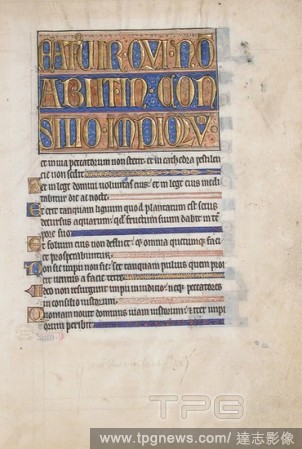 EATVIR·QVI·NŌ
ABIIT·IN·CON
SILIO·IMPIOꝜV·
et in uia peccatorum non stetit. et in cathedra pestilen
cie non sedit.
ed in lege domini uoluntas eius: et in lege eius medi
tabitur die ac nocte.
t erit tanquam lignum quod plantatum est secus
decursus aquarum: quod fructum suum dabit in tem
pore suo.
t folium eius non defluet: et omnia quecumque faci
et prosperabuntur.
on sic impii non sic: set tanquam puluis quem proi
cit uentus a facie terre.
deo non resurgunt impii in iudicio: neque peccatores
in consilio iustorum.
uoniam nouit dominus uiam iustorum: et iter impi
orum peribit.
TPG
www.tpgnews.com / 達志影像